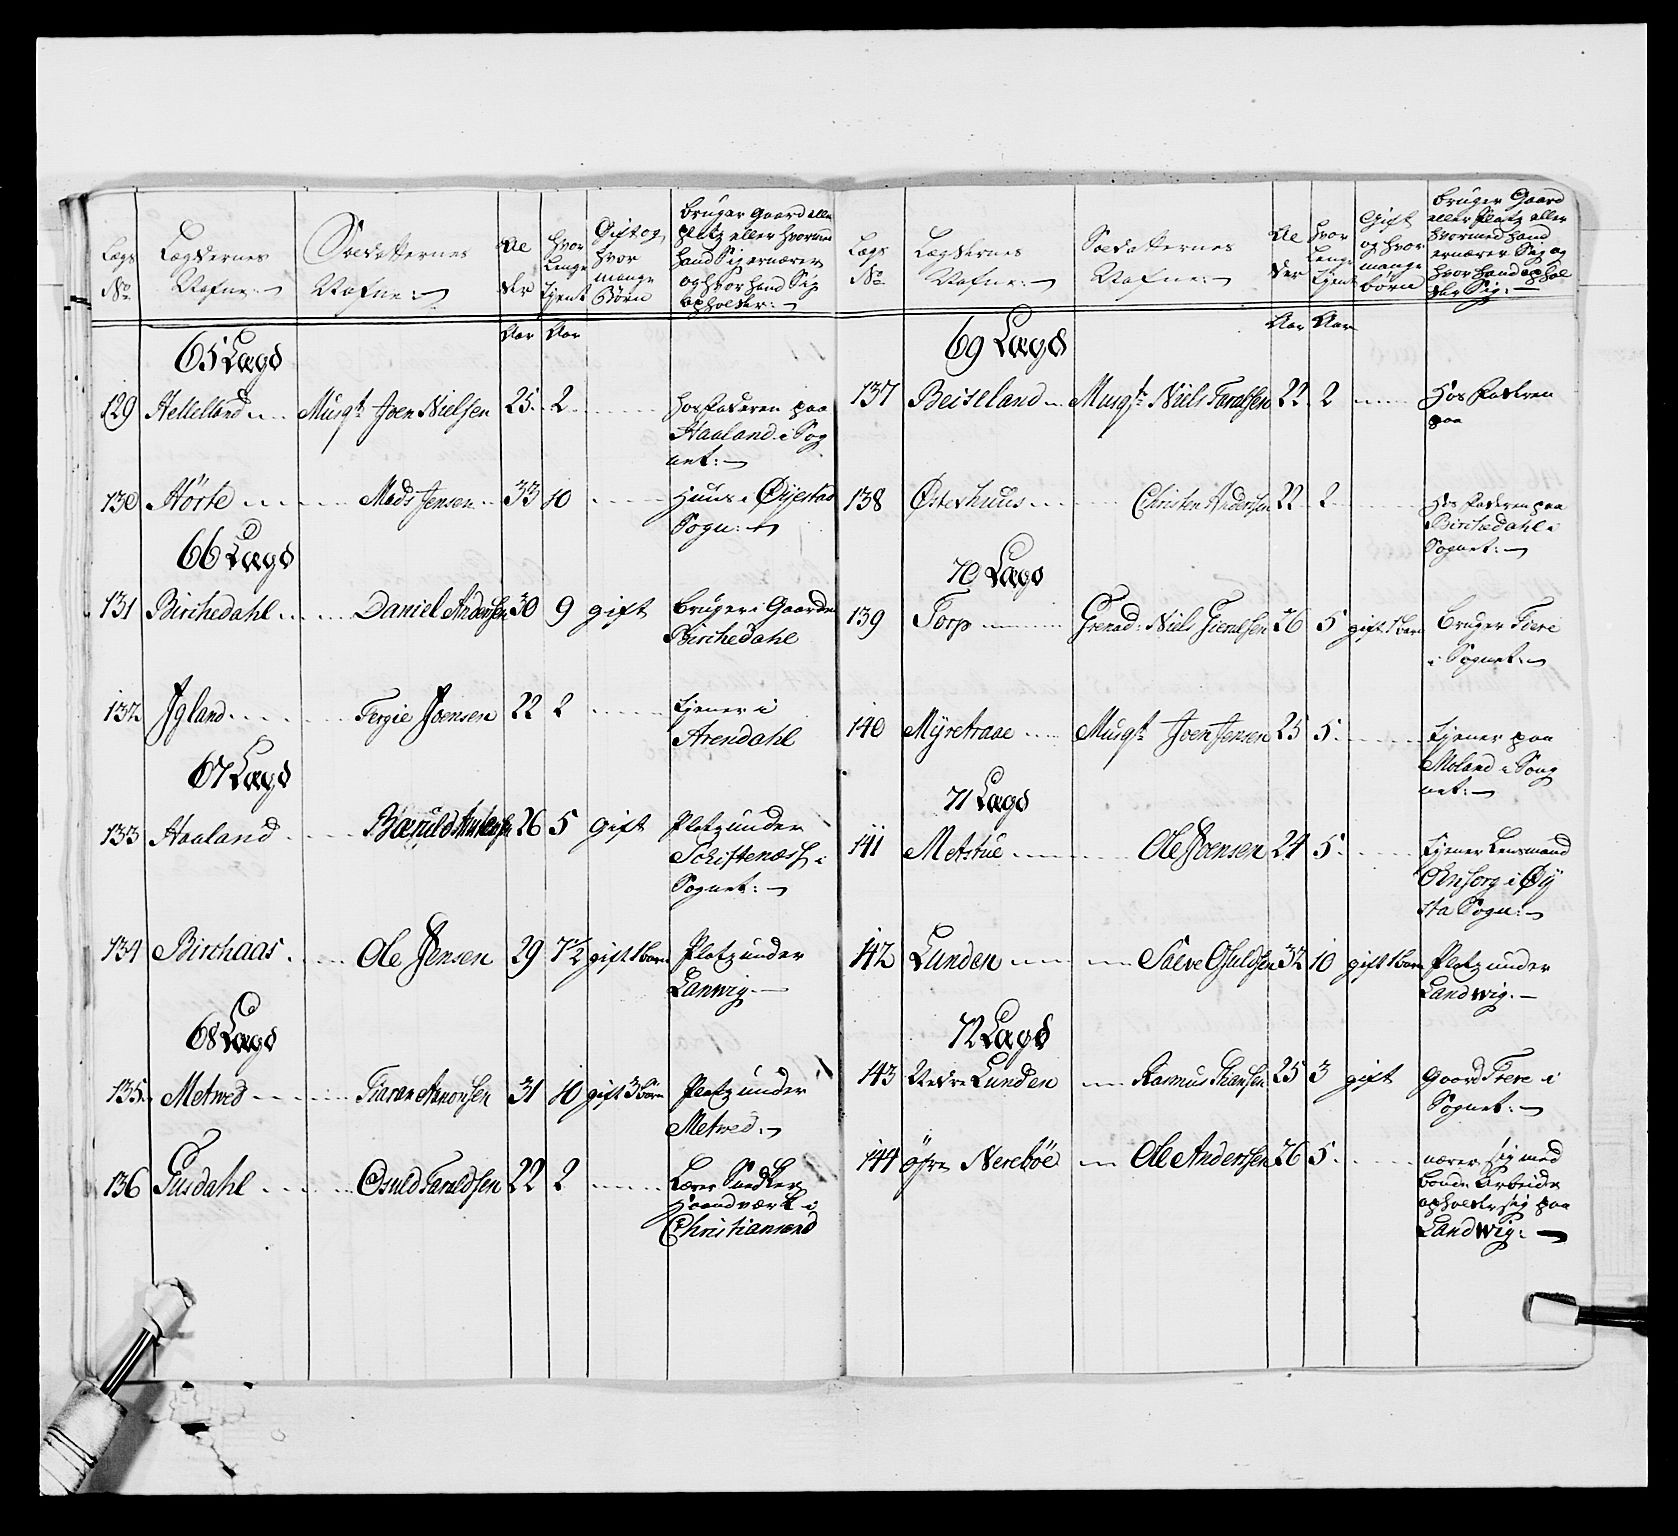 Lægs No
Lægdernes Nafne:
Soldatternes Nafne:
Al der
Hvor Lenge tjent
Gift og hvor mange Børn
bruger Gaard eller
platz eller hvormed
hand Sig ernærer
og hvor hand Sig
opholder:
Aar Aar
65 Lægd
129 Hellelland Musqt Joen Nielsen 25 2 hos Faderen paa
Haaland i Sog
net:
130 Hörte Mads Jensen 33 10 Huus i Øyestad
Sogn:
66 Lægd
131 Birchedahl Daniel Andersen 30 9 gift bruger i Gaarden
Birchedahl
132 Jgland Tergie Joensen 22 2 tjener i
Arendahl
67 Lægd
133 Haaland 26 5 gift Platz under
i
Sognet:
134 Birchaas Ole Jensen 29 7½ gift 1 barn Platz under
Lanwig.
68 Lægd
135 Metwed Aanonsen 31 10 gift 3 børn Platz under
Metwed.
136 Gusdahl Osuld Taraldsen 22 2 Lærer Snedker
Haandværk i
Christiansand
Lægs No
Lægdernes Nafne:
Soldatternes Nafne:
Al der
Hvor Lenge tjent
Gift og hvor mange børn
bruger Gaard
eller Platz eller
hvormed hand
ernærer Sig og
hvor hand ophol
der Sig:
Aar Aar
69 Lægd
137 Beiseland Musqt Niels Taralsen 22 2 Hos Faderen
paa
138 Østerhuus Christen Andersen 22 2 Hos Faderen paa
Birchedahl i
Sognet:
70 Lægd
139 Torp Grenad: Niels 26 5 gift 1 barn bruger
i Sognet:
140 Myretraae Musqt Joen Jensen 25 5 tjener paa
Moland i Sog
net:
71 Lægd
141 Metstue Ole Joensen 24 5 tjener Lensmand
i Øy
sta Sogn:
142 Lunden Osuldsen 32 10 gift 1 barn Platz under
Landwig.
72 Lægd
143 Nedre Lunden Rasmus 25 3 gift Gaard i
Sognet:
144 öfre Nerebøe Ole Andersen 26 5 nærer sig med
bonde Arbeide
opholder sig paa
Landwig: